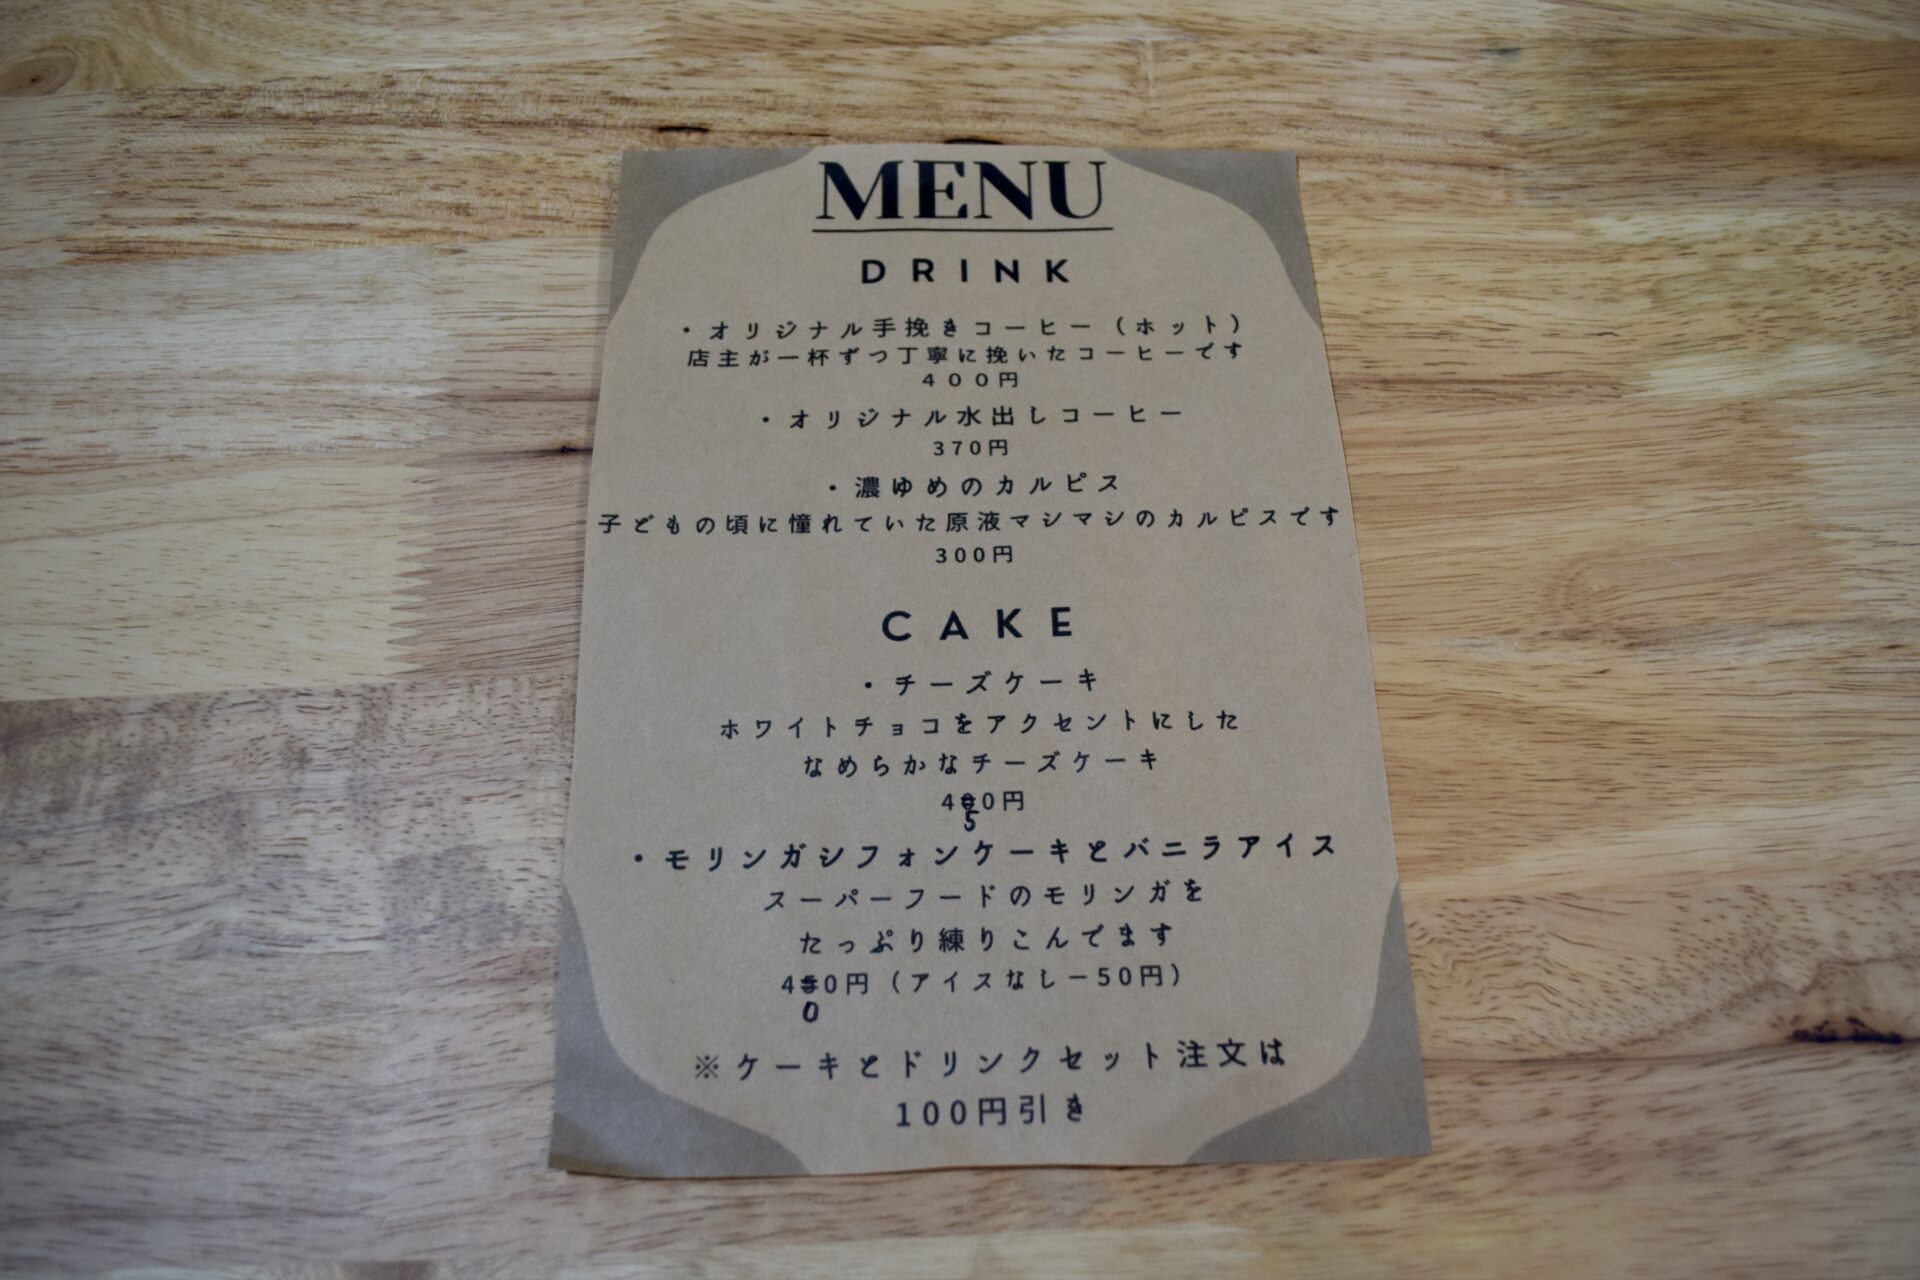 MENU
DRINK
・オリジナル手挽きコーヒー（ホット）
店主が一杯ずつ丁寧に挽いたコーヒーです
４００円
・オリジナル水出しコーヒー
370円
・濃ゆめのカルピス
子どもの頃に憧れていた原液マシマシのカルピスです
300円
CAKE
・チーズケーキ
ホワイトチョコをアクセントにした
なめらかなチーズケーキ
400円
5
・モリンガシフォンケーキとバニラアイス
スーパーフードのモリンガを
たっぷり練りこんでます
450円（アイスなしー50円）
0
※ケーキとドリンクセット注文は
100円引き